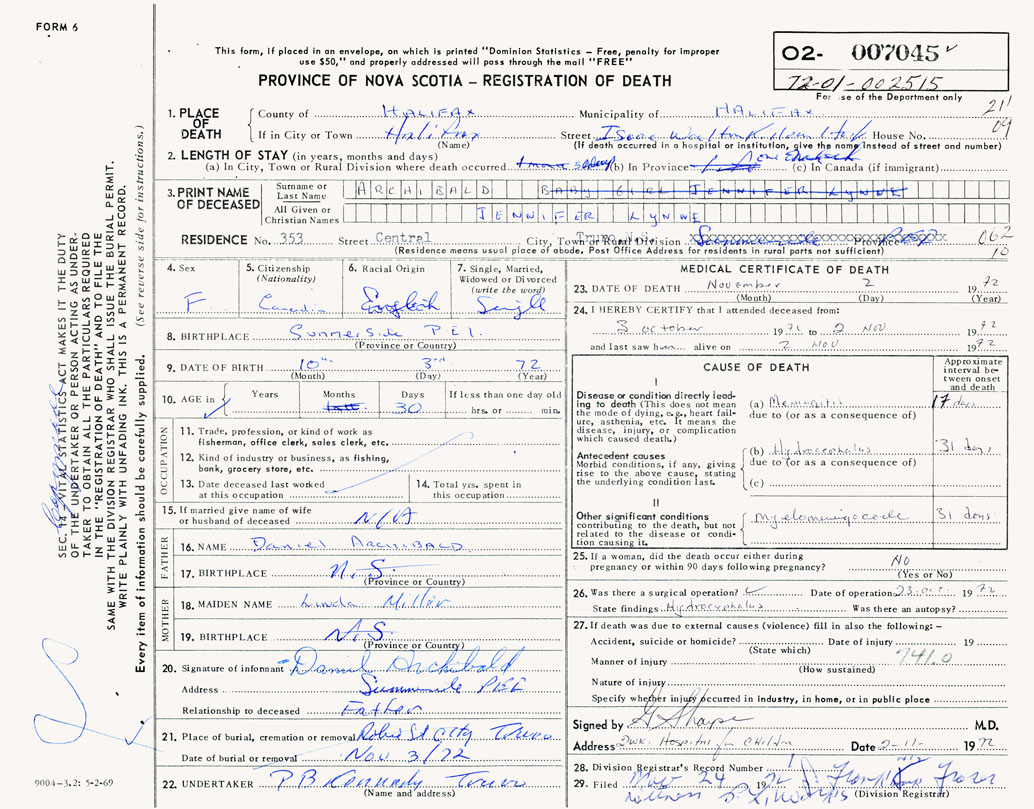 FORM 6
This form, if placed in an envelope, on which is printed "Dominion Statistics – Free, penalty for improper
use $50," and properly addressed will pass through the mail "FREE"
PROVINCE OF NOVA SCOTIA – REGISTRATION OF DEATH
O2- 007045
72-01-002515
For use of the Department only
1. PLACE OF DEATH
County of HALIFAX Municipality of HALIFAX 21
If in City or Town Halifax Street House No. 09
(Name) (If death occurred in a hospital or institution, give the name instead of street and number)
2. LENGTH OF STAY (in years, months and days)
(a) In City, Town or Rural Division where death occurred (b) In Province (c) In Canada (if immigrant)
3. PRINT NAME OF DECEASED
Surname or Last Name ARCHIBALD BABY GIRL JENNIFER LYNNE
All Given or Christian Names JENNIFER LYNNE
RESIDENCE No. 353 Street Central City, Town or Rural Division Truro N.S. Summerside Province PEI 062
(Residence means usual place of abode. Post Office Address for residents in rural parts not sufficient) 10
4. Sex F
5. Citizenship (Nationality) Canadian
6. Racial Origin English
7. Single, Married, Widowed or Divorced (write the word) Single
8. BIRTHPLACE Summerside PEI.
(Province or Country)
9. DATE OF BIRTH 10th 3rd 72
(Month) (Day) (Year)
10. AGE in Years Months Days 30 If less than one day old hrs. or min.
OCCUPATION
11. Trade, profession, or kind of work as fisherman, office clerk, sales clerk, etc.
12. Kind of industry or business, as fishing, bank, grocery store, etc.
13. Date deceased last worked at this occupation
14. Total yrs. spent in this occupation
15. If married give name of wife or husband of deceased N/A
FATHER
16. NAME Daniel ARCHIBALD
17. BIRTHPLACE N.S.
(Province or Country)
MOTHER
18. MAIDEN NAME Linda Miller
19. BIRTHPLACE N.S.
(Province or Country)
20. Signature of informant Daniel Archibald
Address Summerside PEI
Relationship to deceased Father
21. Place of burial, cremation or removal Robie St Cty Truro
Date of burial or removal Nov 3/72
22. UNDERTAKER PB Kennedy Truro
(Name and address)
MEDICAL CERTIFICATE OF DEATH
23. DATE OF DEATH November 2 1972
(Month) (Day) (Year)
24. I HEREBY CERTIFY that I attended deceased from:
3 October 1971 to 2 NOV 1972
and last saw h alive on 2 NOV 1972
CAUSE OF DEATH
Approximate interval between onset and death
I
Disease or condition directly leading to death (This does not mean the mode of dying, e.g., heart failure, asthenia, etc. It means the disease, injury, or complication which caused death.)
(a) Meningitis 17 days
due to (or as a consequence of)
Antecedent causes
Morbid conditions, if any, giving rise to the above cause, stating the underlying condition last.
(b) Hydrocephalus 31 days
due to (or as a consequence of)
(c)
II
Other significant conditions contributing to the death, but not related to the disease or condition causing it.
myelomeningocoele 31 days
25. If a woman, did the death occur either during pregnancy or within 90 days following pregnancy? NO
(Yes or No)
26. Was there a surgical operation? Date of operation 23 Oct. 1972
State findings Hydrocephalus Was there an autopsy?
27. If death was due to external causes (violence) fill in also the following: –
Accident, suicide or homicide? Date of injury 19
(State which)
Manner of injury 741.0
(How sustained)
Nature of injury
Specify whether injury occurred in industry, in home, or in public place
Signed by G Sharpe M.D.
Address Hospital for Children Date 2-11- 1972
28. Division Registrar's Record Number
29. Filed Nov 24 1972
(Division Registrar)
SEC. 14 VITAL STATISTICS ACT MAKES IT THE DUTY
OF THE UNDERTAKER OR PERSON ACTING AS UNDER-
TAKER TO OBTAIN ALL THE PARTICULARS REQUIRED
IN THE "REGISTRATION OF DEATH" AND TO FILE THE
SAME WITH THE DIVISION REGISTRAR WHO SHALL ISSUE THE BURIAL PERMIT.
WRITE PLAINLY WITH UNFADING INK. THIS IS A PERMANENT RECORD.
Every item of information should be carefully supplied. (See reverse side for instructions.)
9004-3.2: 5-2-69